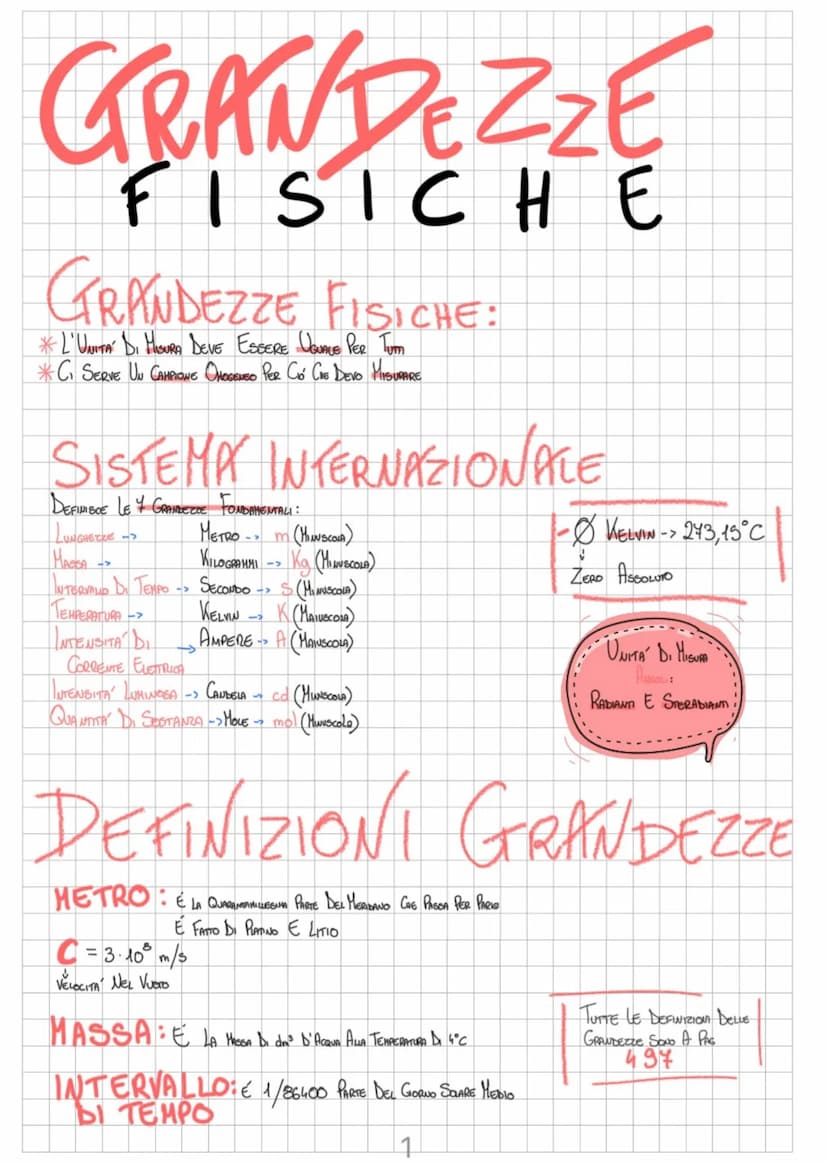 GRANDEZZE
FISICHE
GRANDEZZE FISICHE:
* L'UNITA' DI MISURA DEVE ESSERE UGUALE PER TUTTI
* CI SERVE UN CAMPIONE OMOGENEO PER CIÓ CHE DEVO MISURARE
SISTEMA INTERNAZIONALE
DEFINISCE LE 7 GRANDEZZE FONDAMENTALI:
LUNGHEZZE -> METRO -> m (MINUSCOLA)
MASSA -> KILOGRAMMI -> Kg (MINUSCOLA)
INTERVALLO DI TEMPO -> SECONDO -> S (MINUSCOLA)
TEMPERATURA -> KELVIN -> K (MAIUSCOLA)
INTENSITA' DI -> AMPERE -> A (MAIUSCOLA)
CORRENTE ELETTRICA
INTENSITA' LUMINOSA -> CANDELA -> cd (MINUSCOLA)
QUANTITA' DI SOSTANZA -> MOLE -> mol (MINUSCOLA)
- Ø KELVIN -> 273,15°C
↓
ZERO ASSOLUTO
UNITA' DI MISURA
ANGOLI:
RADIANTI E STERADIANTI
DEFINIZIONI GRANDEZZE
METRO: É LA QUARANTAMILLESIMA PARTE DEL MERIDIANO CHE PASSA PER PARIGI
É FATTO DI PLATINO E LITIO
C = 3·10⁸ m/s
↓
VELOCITA' NEL VUOTO
MASSA: É LA MASSA DI dm³ D'ACQUA ALLA TEMPERATURA DI 4°C
INTERVALLO: É 1/86400 PARTE DEL GIORNO SOLARE MEDIO
DI TEMPO
TUTTE LE DEFINIZIONI DELLE
GRANDEZZE SONO A PAG
497
1